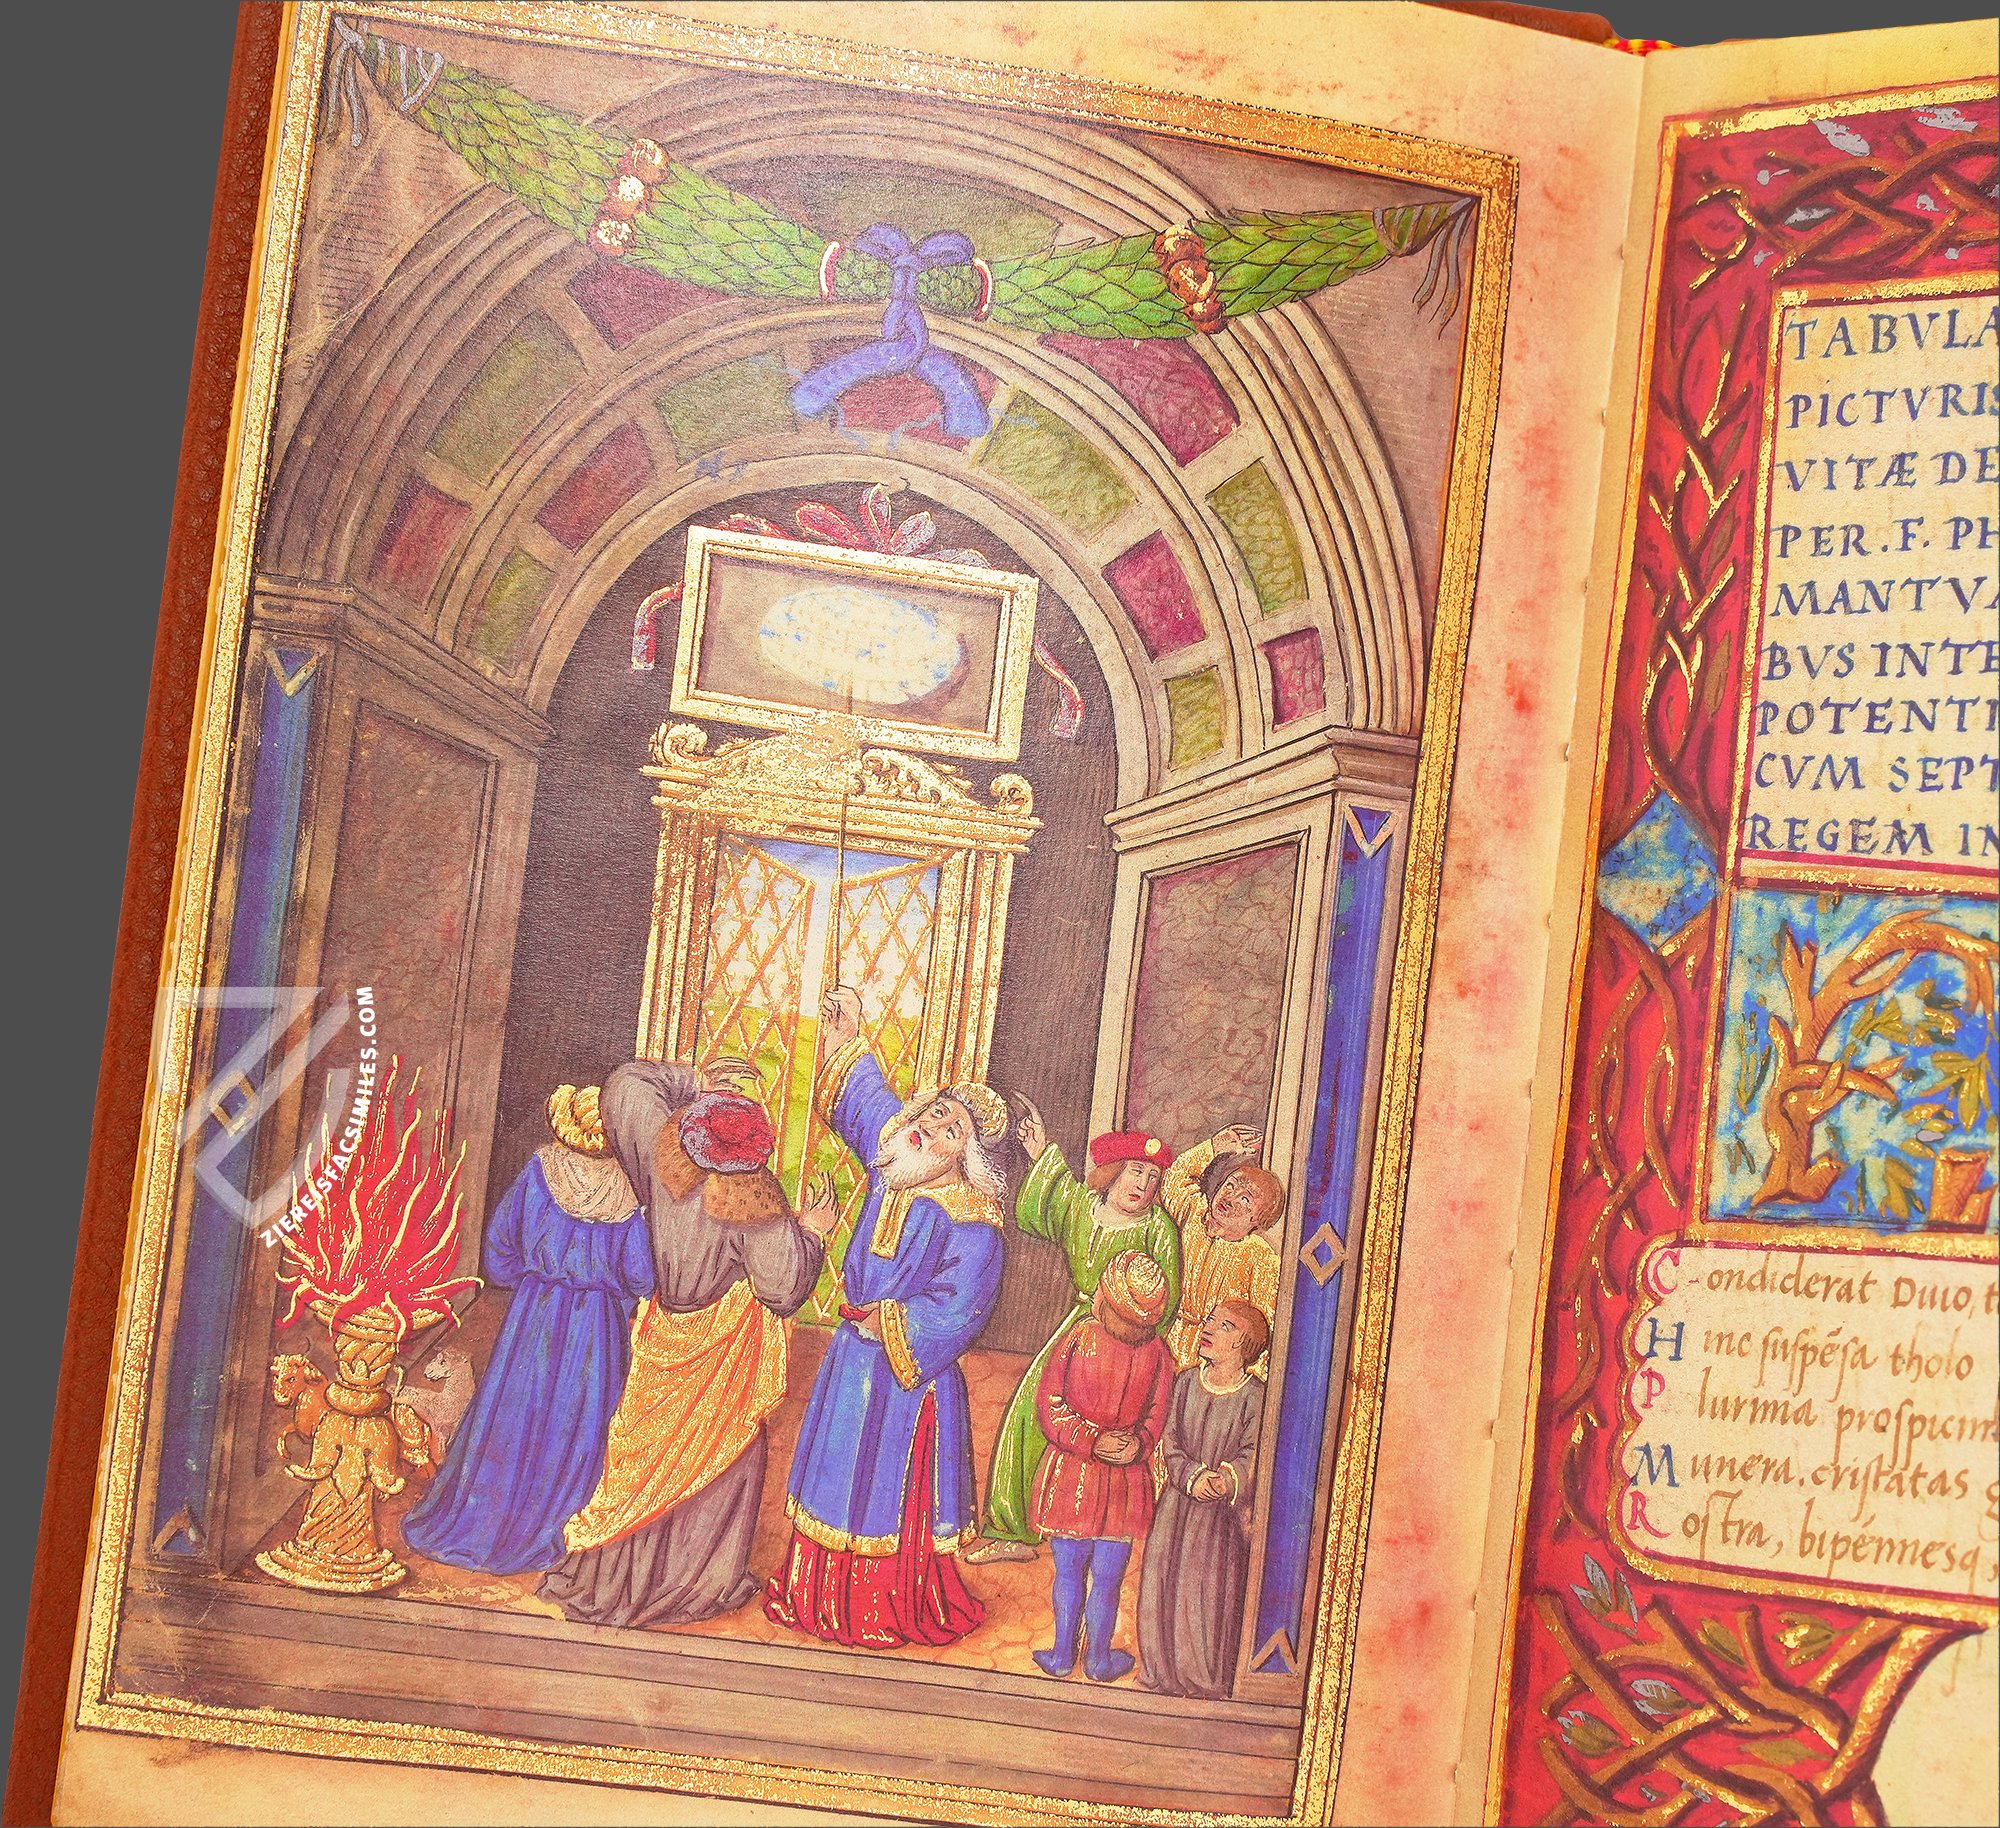 ZIEREISFACSIMILES.COM
TABVLA
PICTVRIS
VITÆ DE
PER. F. PH
MANTVA
BVS INTE
POTENTI
CVM SEPT
REGEM IN
C-ondiderat Diuo, t
H inc suspēsa tholo
P lurima prospicim
M unera. cristatas g
R ostra, bipénnesq,